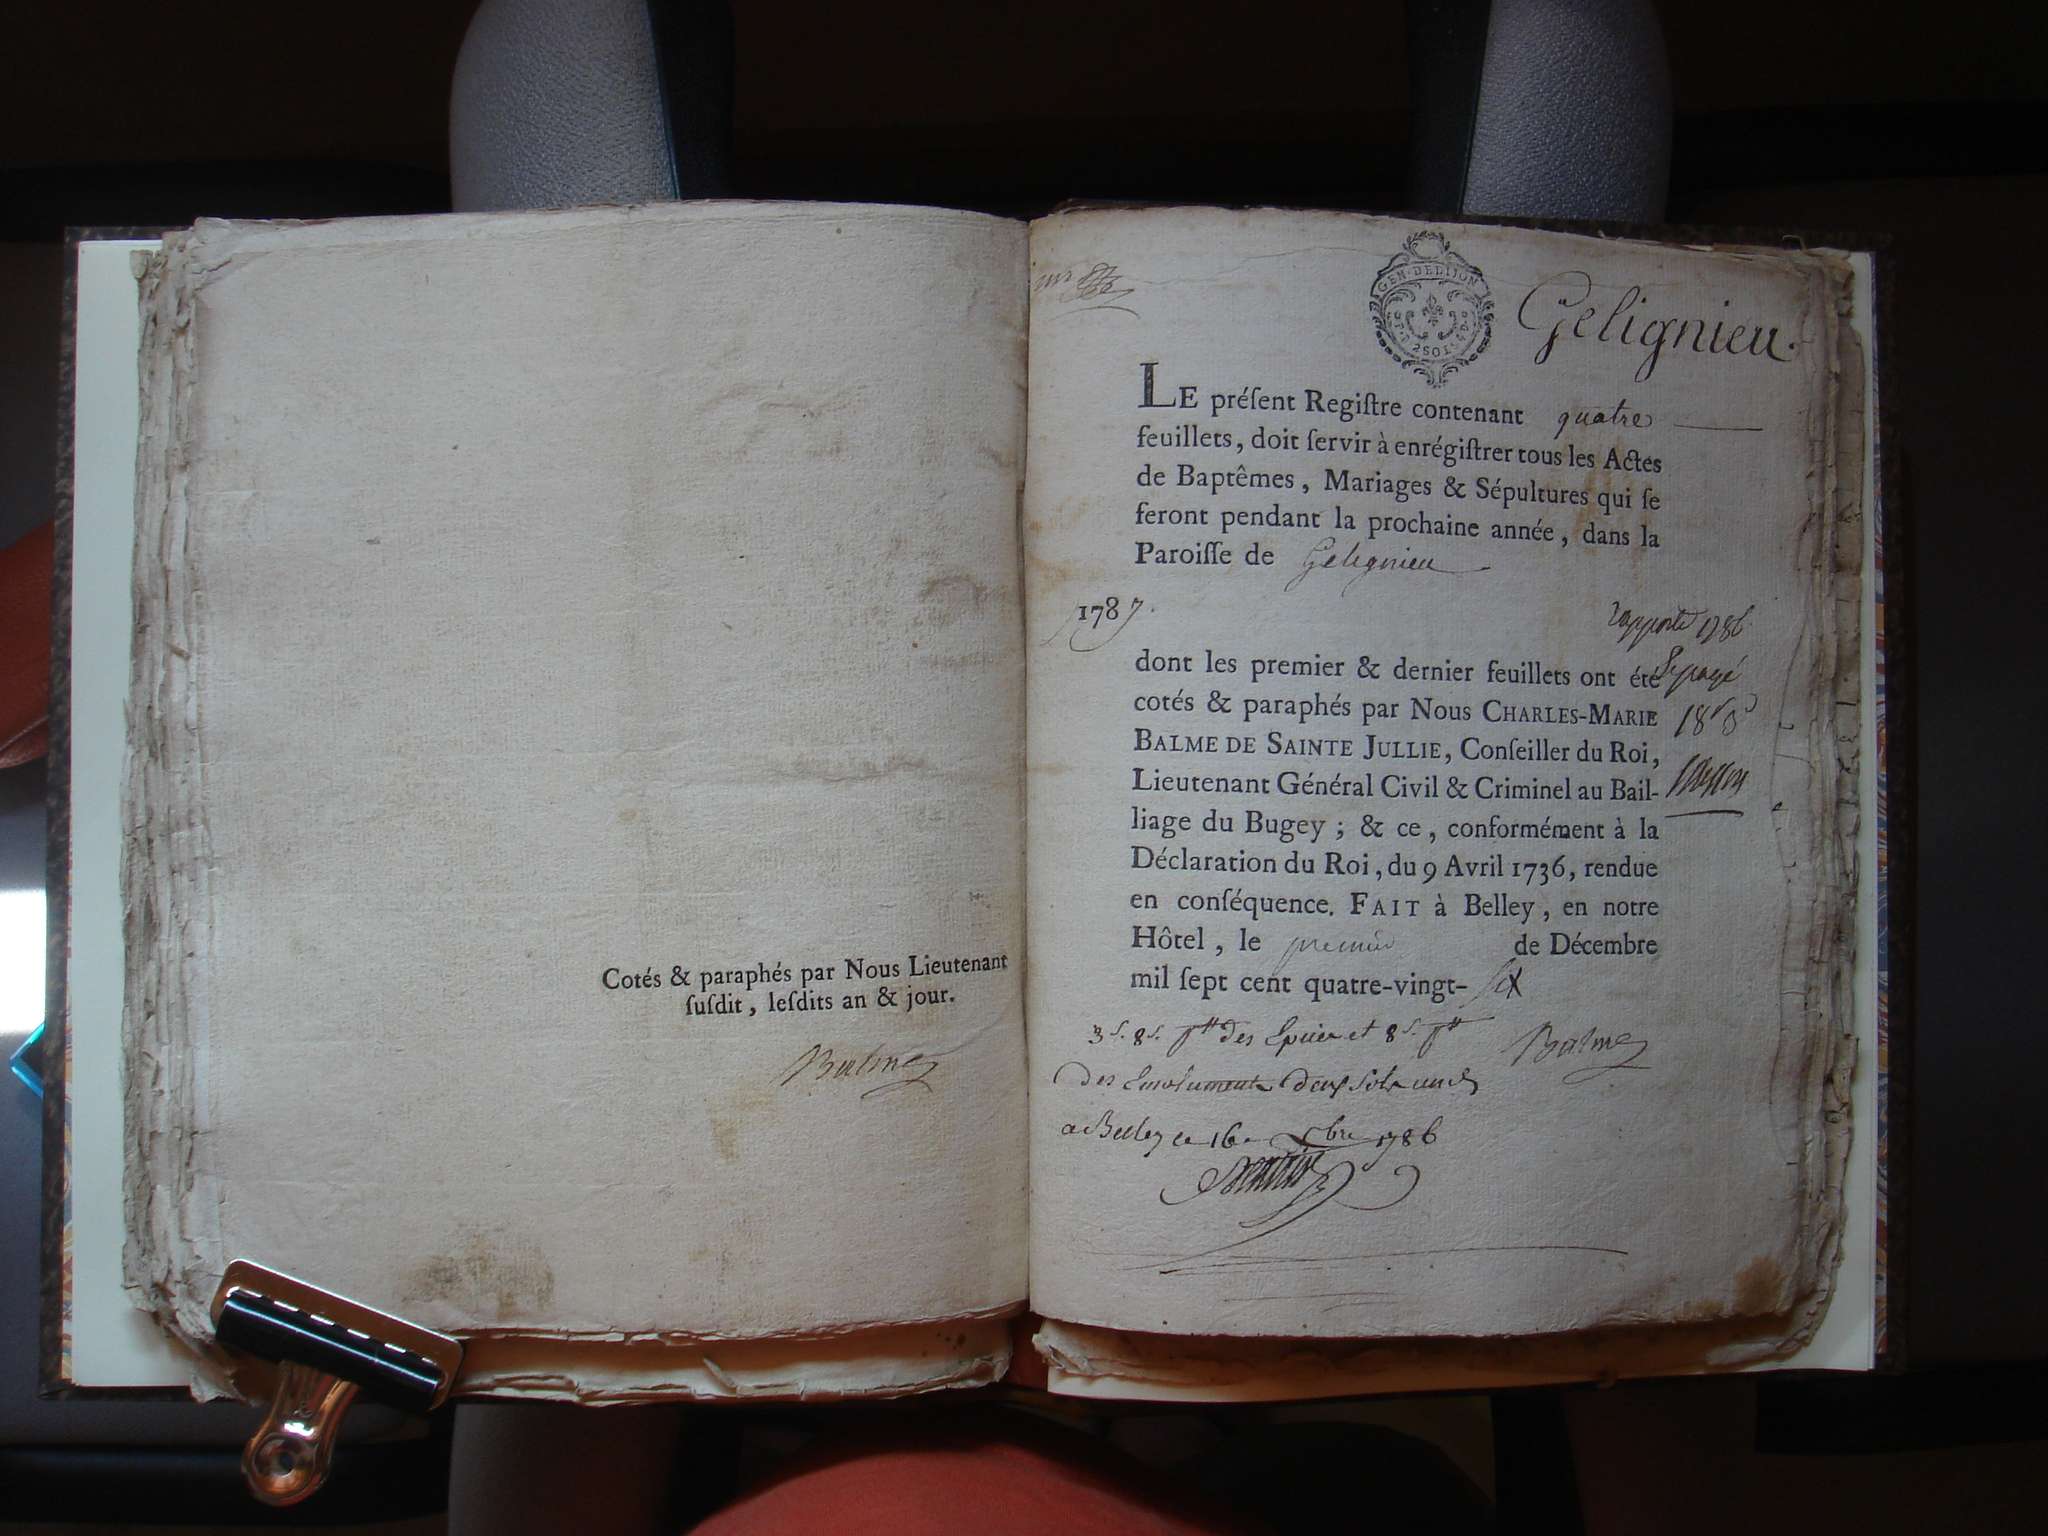 Cotés & paraphés par Nous Lieutenant
ſuſdit, leſdits an & jour.
Balme
GEN·DEDIJON
2SOLS
Gelignieu.
LE préſent Regiſtre contenant quatre
feuillets, doit ſervir à enrégiſtrer tous les Actes
de Baptêmes, Mariages & Sépultures qui ſe
feront pendant la prochaine année, dans la
Paroiſſe de Gelignieu
1787.
rapporté 1786
dont les premier & dernier feuillets ont été
cotés & paraphés par Nous CHARLES-MARIE
BALME DE SAINTE JULLIE, Conſeiller du Roi,
Lieutenant Général Civil & Criminel au Bail-
liage du Bugey ; & ce, conformément à la
Déclaration du Roi, du 9 Avril 1736, rendue
en conſéquence. FAIT à Belley, en notre
Hôtel, le premier de Décembre
mil ſept cent quatre-vingt-ſix
3ˢ· 8ᵈ· pʳ des Epices et 8ˢ· pʳ
Balme
des Emoluments deux sols
a Belley ce 16e Xbre 1786